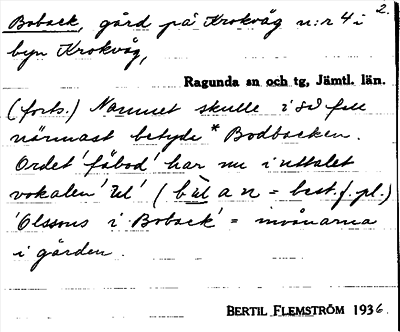 2.
Boback, gård på Krokvåg n:r 4 i
byn Krokvåg,
Ragunda sn och tg, Jämtl. län.
(forts.) Namnet skulle i så fall
närmast betyda *Bodbacken.
Ordet 'fäbod' har nu i uttalet
vokalen 'ùl' (bùlan = best. f. pl.)
'Olssons i Boback' = invånarna
i gården.
BERTIL FLEMSTRÖM 1936.